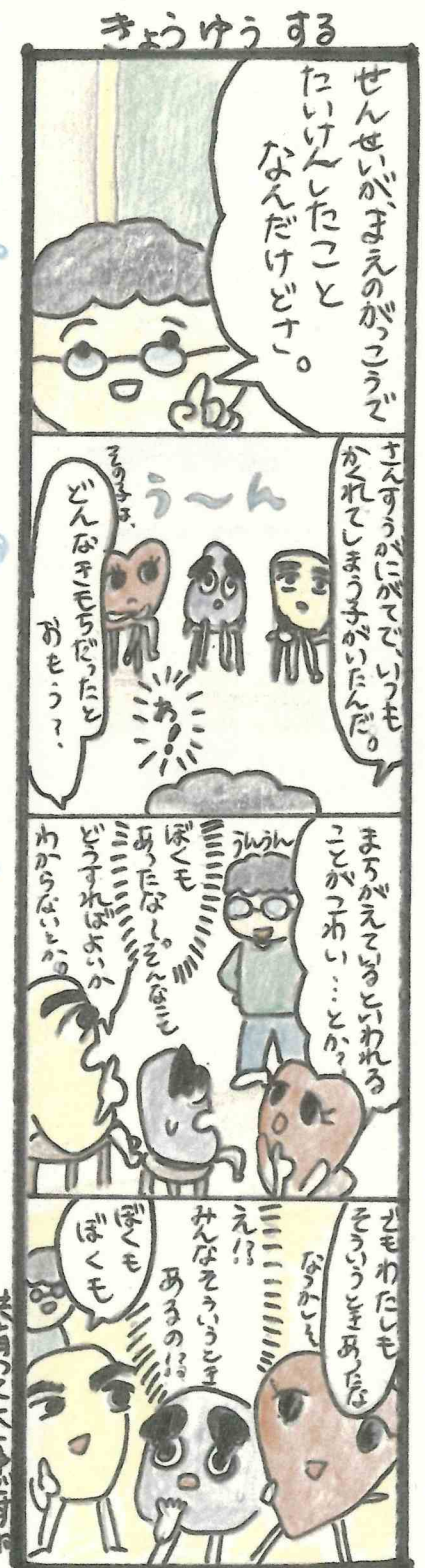 きょうゆうする
せんせいが、まえのがっこうで
たいけんしたこと
なんだけどさ。
さんすうがにがてで、いつも
かくれてしまう子がいたんだ。
う～ん
その子は、
どんなきもちだったと
おもう？
わ！
まちがえているといわれる
ことがこわい…とか？
うんうん
ぼくも
あったな～。そんなこと
どうすればよいか
わからないとか。
でもわたしも
そういうときあったな
なつかし～
え！？
みんなそういうとき
あるの！？
ぼくも
ぼくも